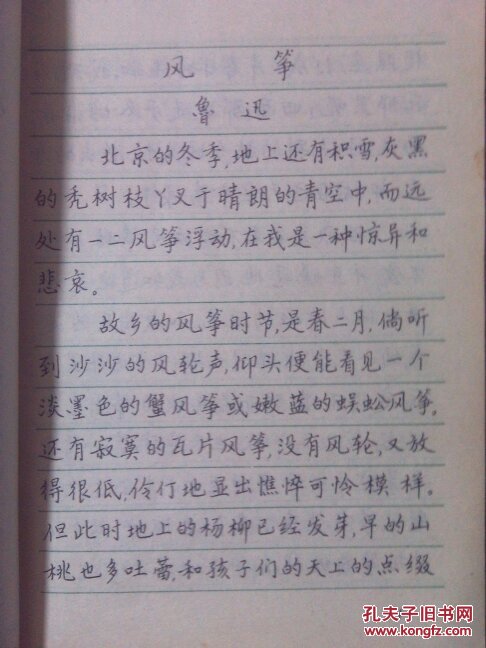 风 筝
鲁 迅
北京的冬季,地上还有积雪,灰黑
的秃树枝丫叉于晴朗的青空中,而远
处有一二风筝浮动,在我是一种惊异和
悲哀。
故乡的风筝时节,是春二月,倘听
到沙沙的风轮声,仰头便能看见一个
淡墨色的蟹风筝或嫩蓝的蜈蚣风筝,
还有寂寞的瓦片风筝,没有风轮,又放
得很低,伶仃地显出憔悴可怜模样。
但此时地上的杨柳已经发芽,早的山
桃也多吐蕾,和孩子们的天上的点缀
孔夫子旧书网
www.kongfz.com